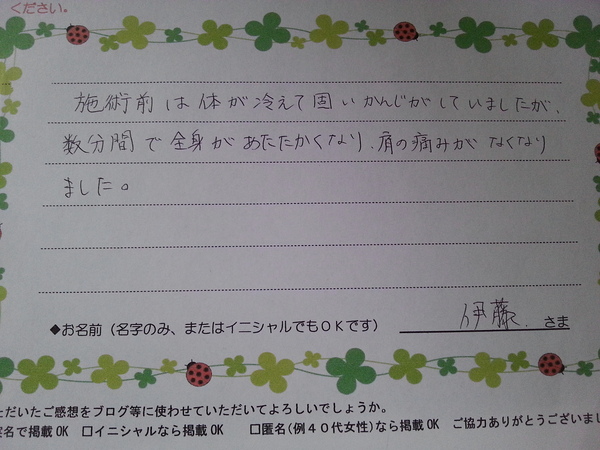 ください。
施術前は体が冷えて固いかんじがしていましたが、
数分間で全身があたたかくなり、肩の痛みがなくなり
ました。
◆お名前（名字のみ、またはイニシャルでもOKです） 伊藤 さま
ただいたご感想をブログ等に使わせていただいてよろしいでしょうか。
名で掲載OK □イニシャルなら掲載OK □匿名(例40代女性)なら掲載OK ご協力ありがとうございまし